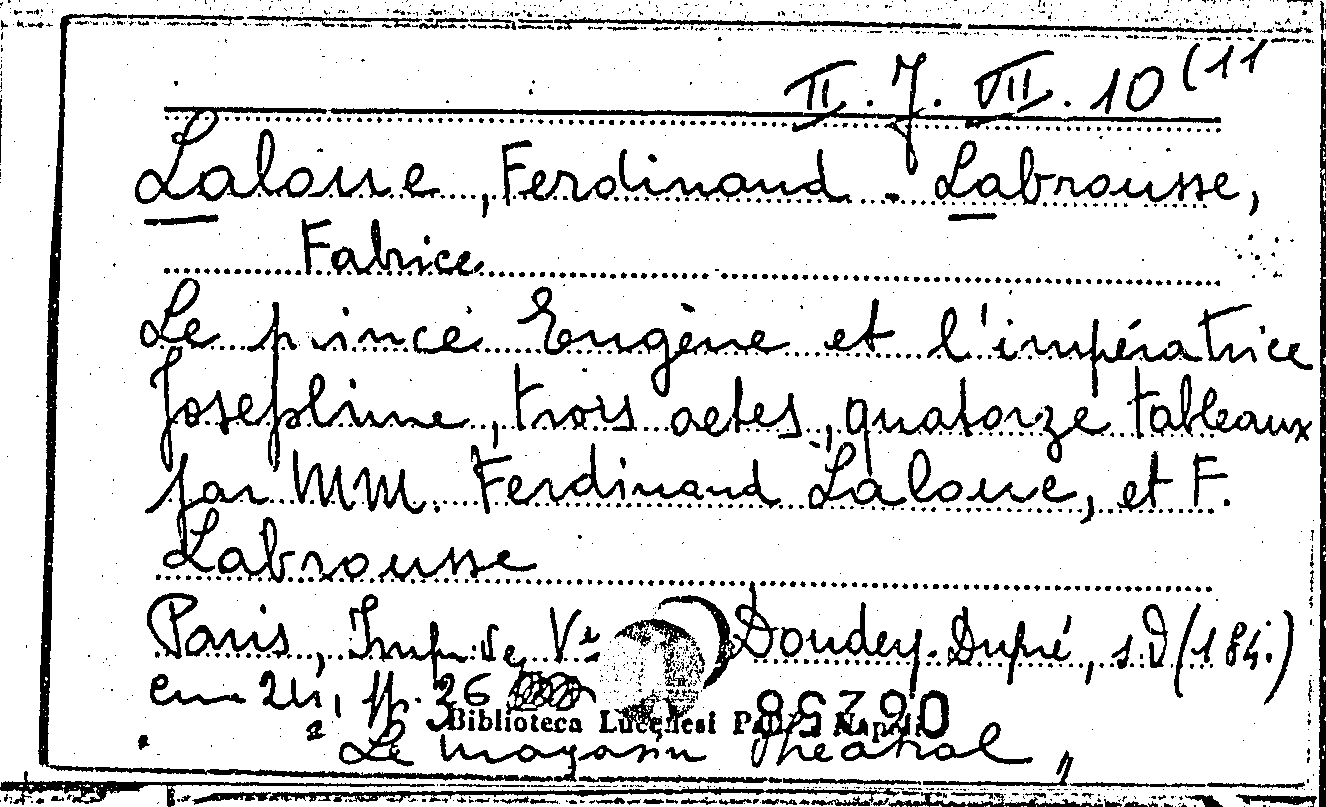 II. J. VII. 10 (11
Laloue, Ferdinand - Labrousse,
Fabrice
Le prince Eugène et l'impératrice
Josephine, trois actes, quatorze tableaux
par MM. Ferdinand Laloue, et F.
Labrousse
Paris, Imp. de Ve Dondey-Dupré, s.d (184.)
cm. pp. 36
Biblioteca Lucchesi Palli Napoli
"Le magasin théatral"